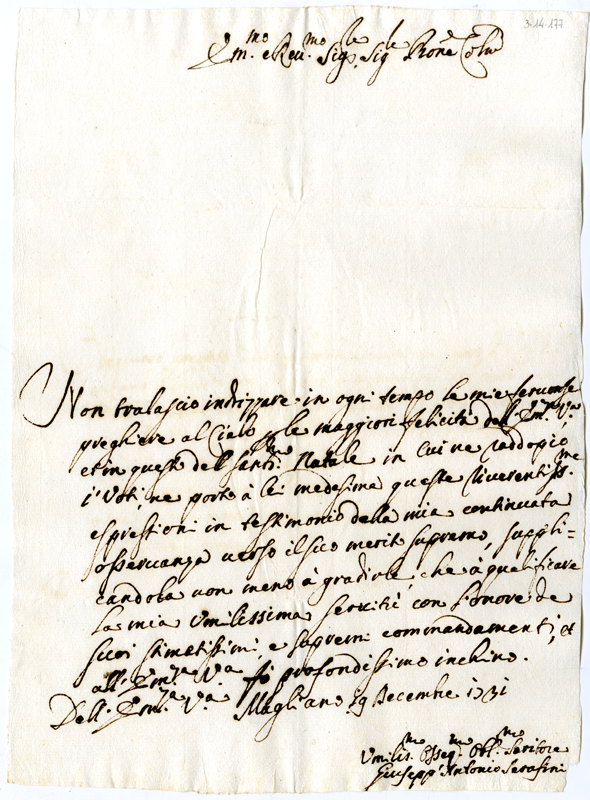 3-14-177
Em.mo e Reu.mo Sig.re Sig.re Prone Col.mo
Non tralascio indrizzare in ogni tempo le mie feruorose
preghiere al Cielo p le maggiori felicità dell'Em.za V.a
et in queste del Sant.mo Natale in cui ne raddopio
i Voti, ne porto à lei medesima queste riuerentiss.me
espressioni in testimonio della mia continuata
osseruanza uerso il suo merito supremo, suppli=
candola non meno à gradirle, che à qualificare
la mia Vmilissima seruitù con l'onore de
suoi stimatissimi, e supremi commandamenti, et
all'Em.za V.a fò profondissimo inchino.
Dell'Em.za V.a Magliano 19 Decembre 1731
Vmilis.mo Osseq.mo Obl.mo Seruitore
Giusepp'Antonio Serafini